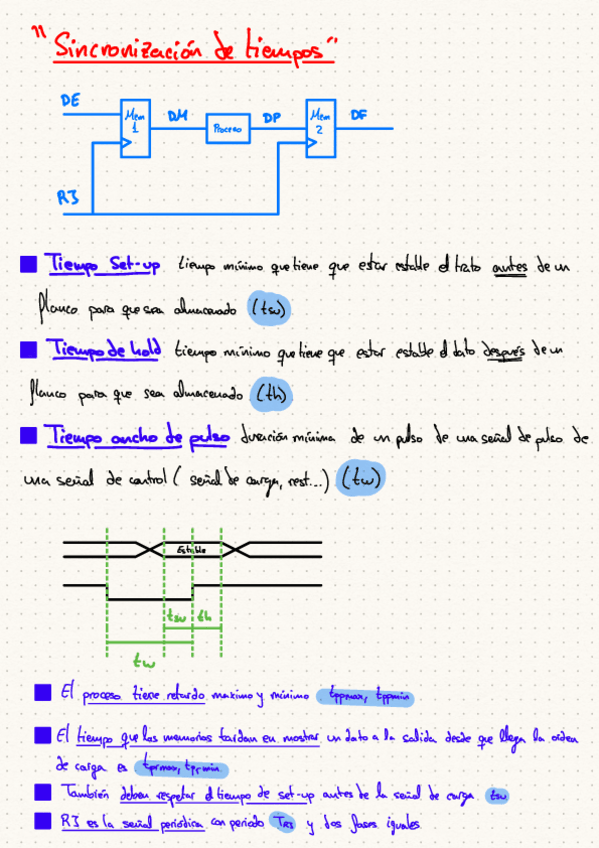 "Sincronización de tiempos"
DE Mem 1 DM Proceso DP Mem 2 DF
RJ
Tiempo Set-up tiempo mínimo que tiene que estar estable el trato antes de un
flanco para que sea almacenado (tsu)
Tiempo de hold tiempo mínimo que tiene que estar estable el dato después de un
flanco para que sea almacenado (th)
Tiempo ancho de pulso duración mínima de un pulso de una señal de pulso de
una señal de control (señal de carga, rest...) (tw)
Estable
tsu th
tw
El proceso tiene retardo maximo y mínimo tppmax, tppmin
El tiempo que las memorias tardan en mostrar un dato a la salida desde que llega la orden
de carga es tprmax, tprmin
También deben respetar el tiempo de set-up antes de la señal de carga tsu
RJ es la señal periódica con periodo TRJ y dos fases iguales